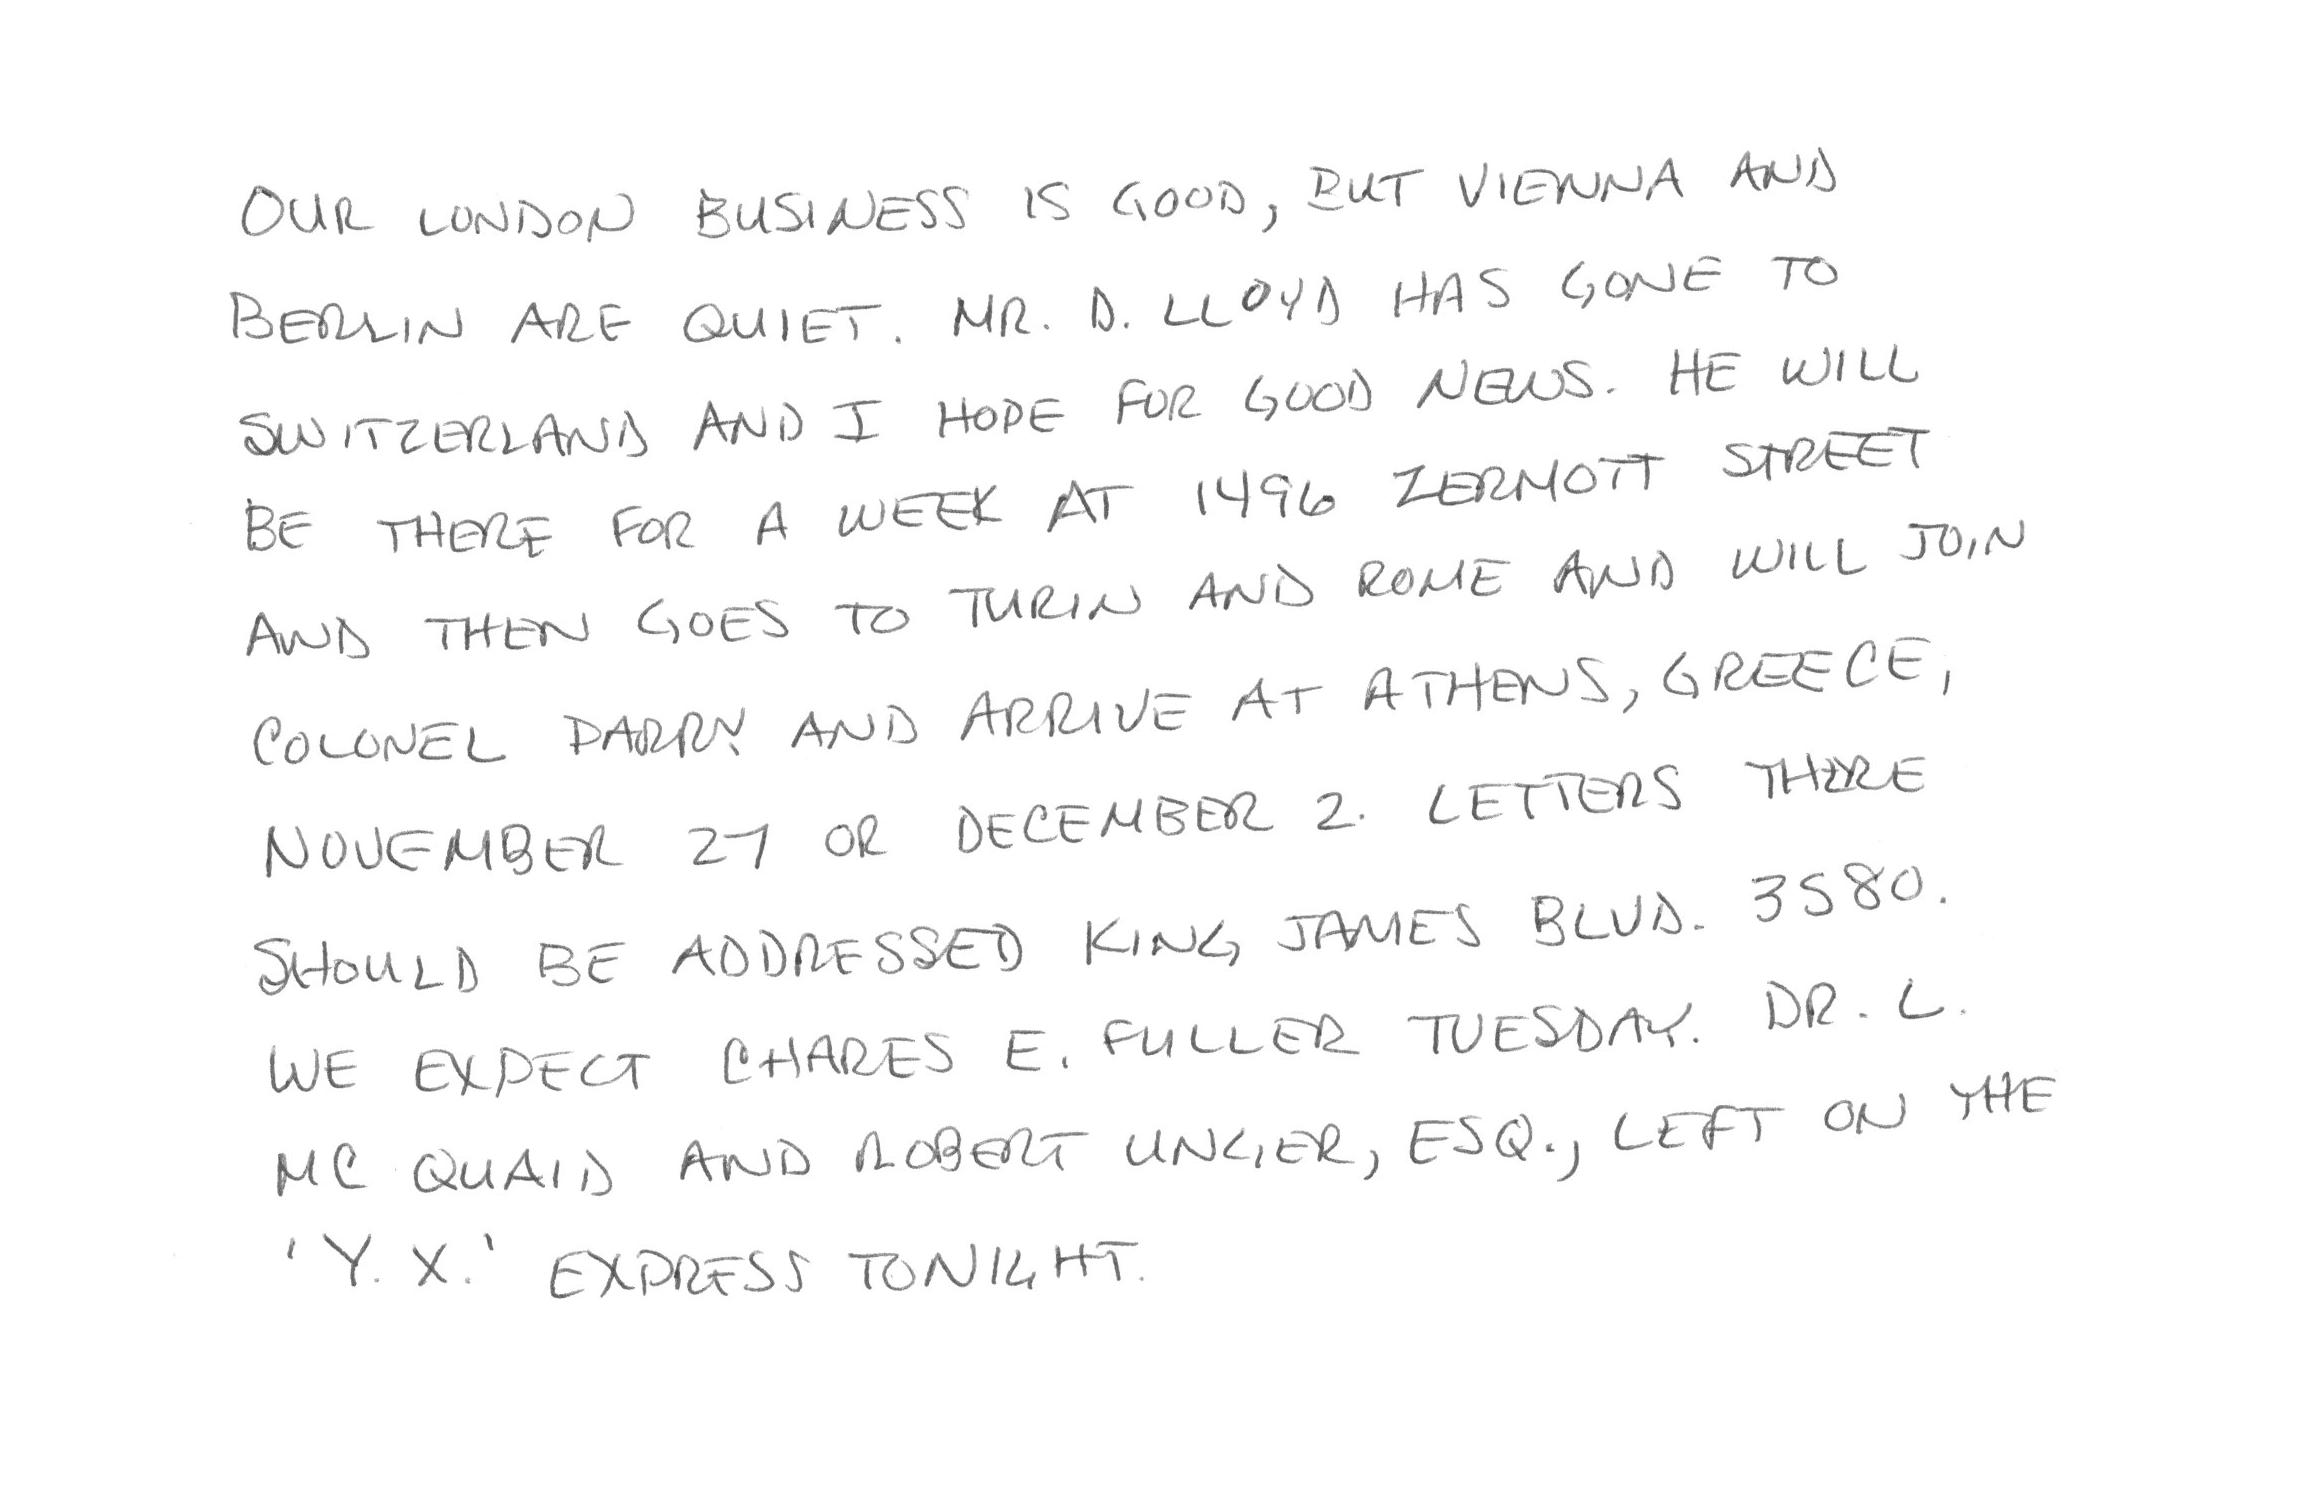 OUR LONDON BUSINESS IS GOOD, BUT VIENNA AND
BERLIN ARE QUIET. MR. D. LLOYD HAS GONE TO
SWITZERLAND AND I HOPE FOR GOOD NEWS. HE WILL
BE THERE FOR A WEEK AT 1496 ZERMOTT STREET
AND THEN GOES TO TURIN AND ROME AND WILL JOIN
COLONEL PARRY AND ARRIVE AT ATHENS, GREECE,
NOVEMBER 27 OR DECEMBER 2. LETTERS THERE
SHOULD BE ADDRESSED KING JAMES BLVD. 3580.
WE EXPECT CHARES E. FULLER TUESDAY. DR. L.
MC QUAID AND ROBERT UNGER, ESQ., LEFT ON THE
'Y. X.' EXPRESS TONIGHT.